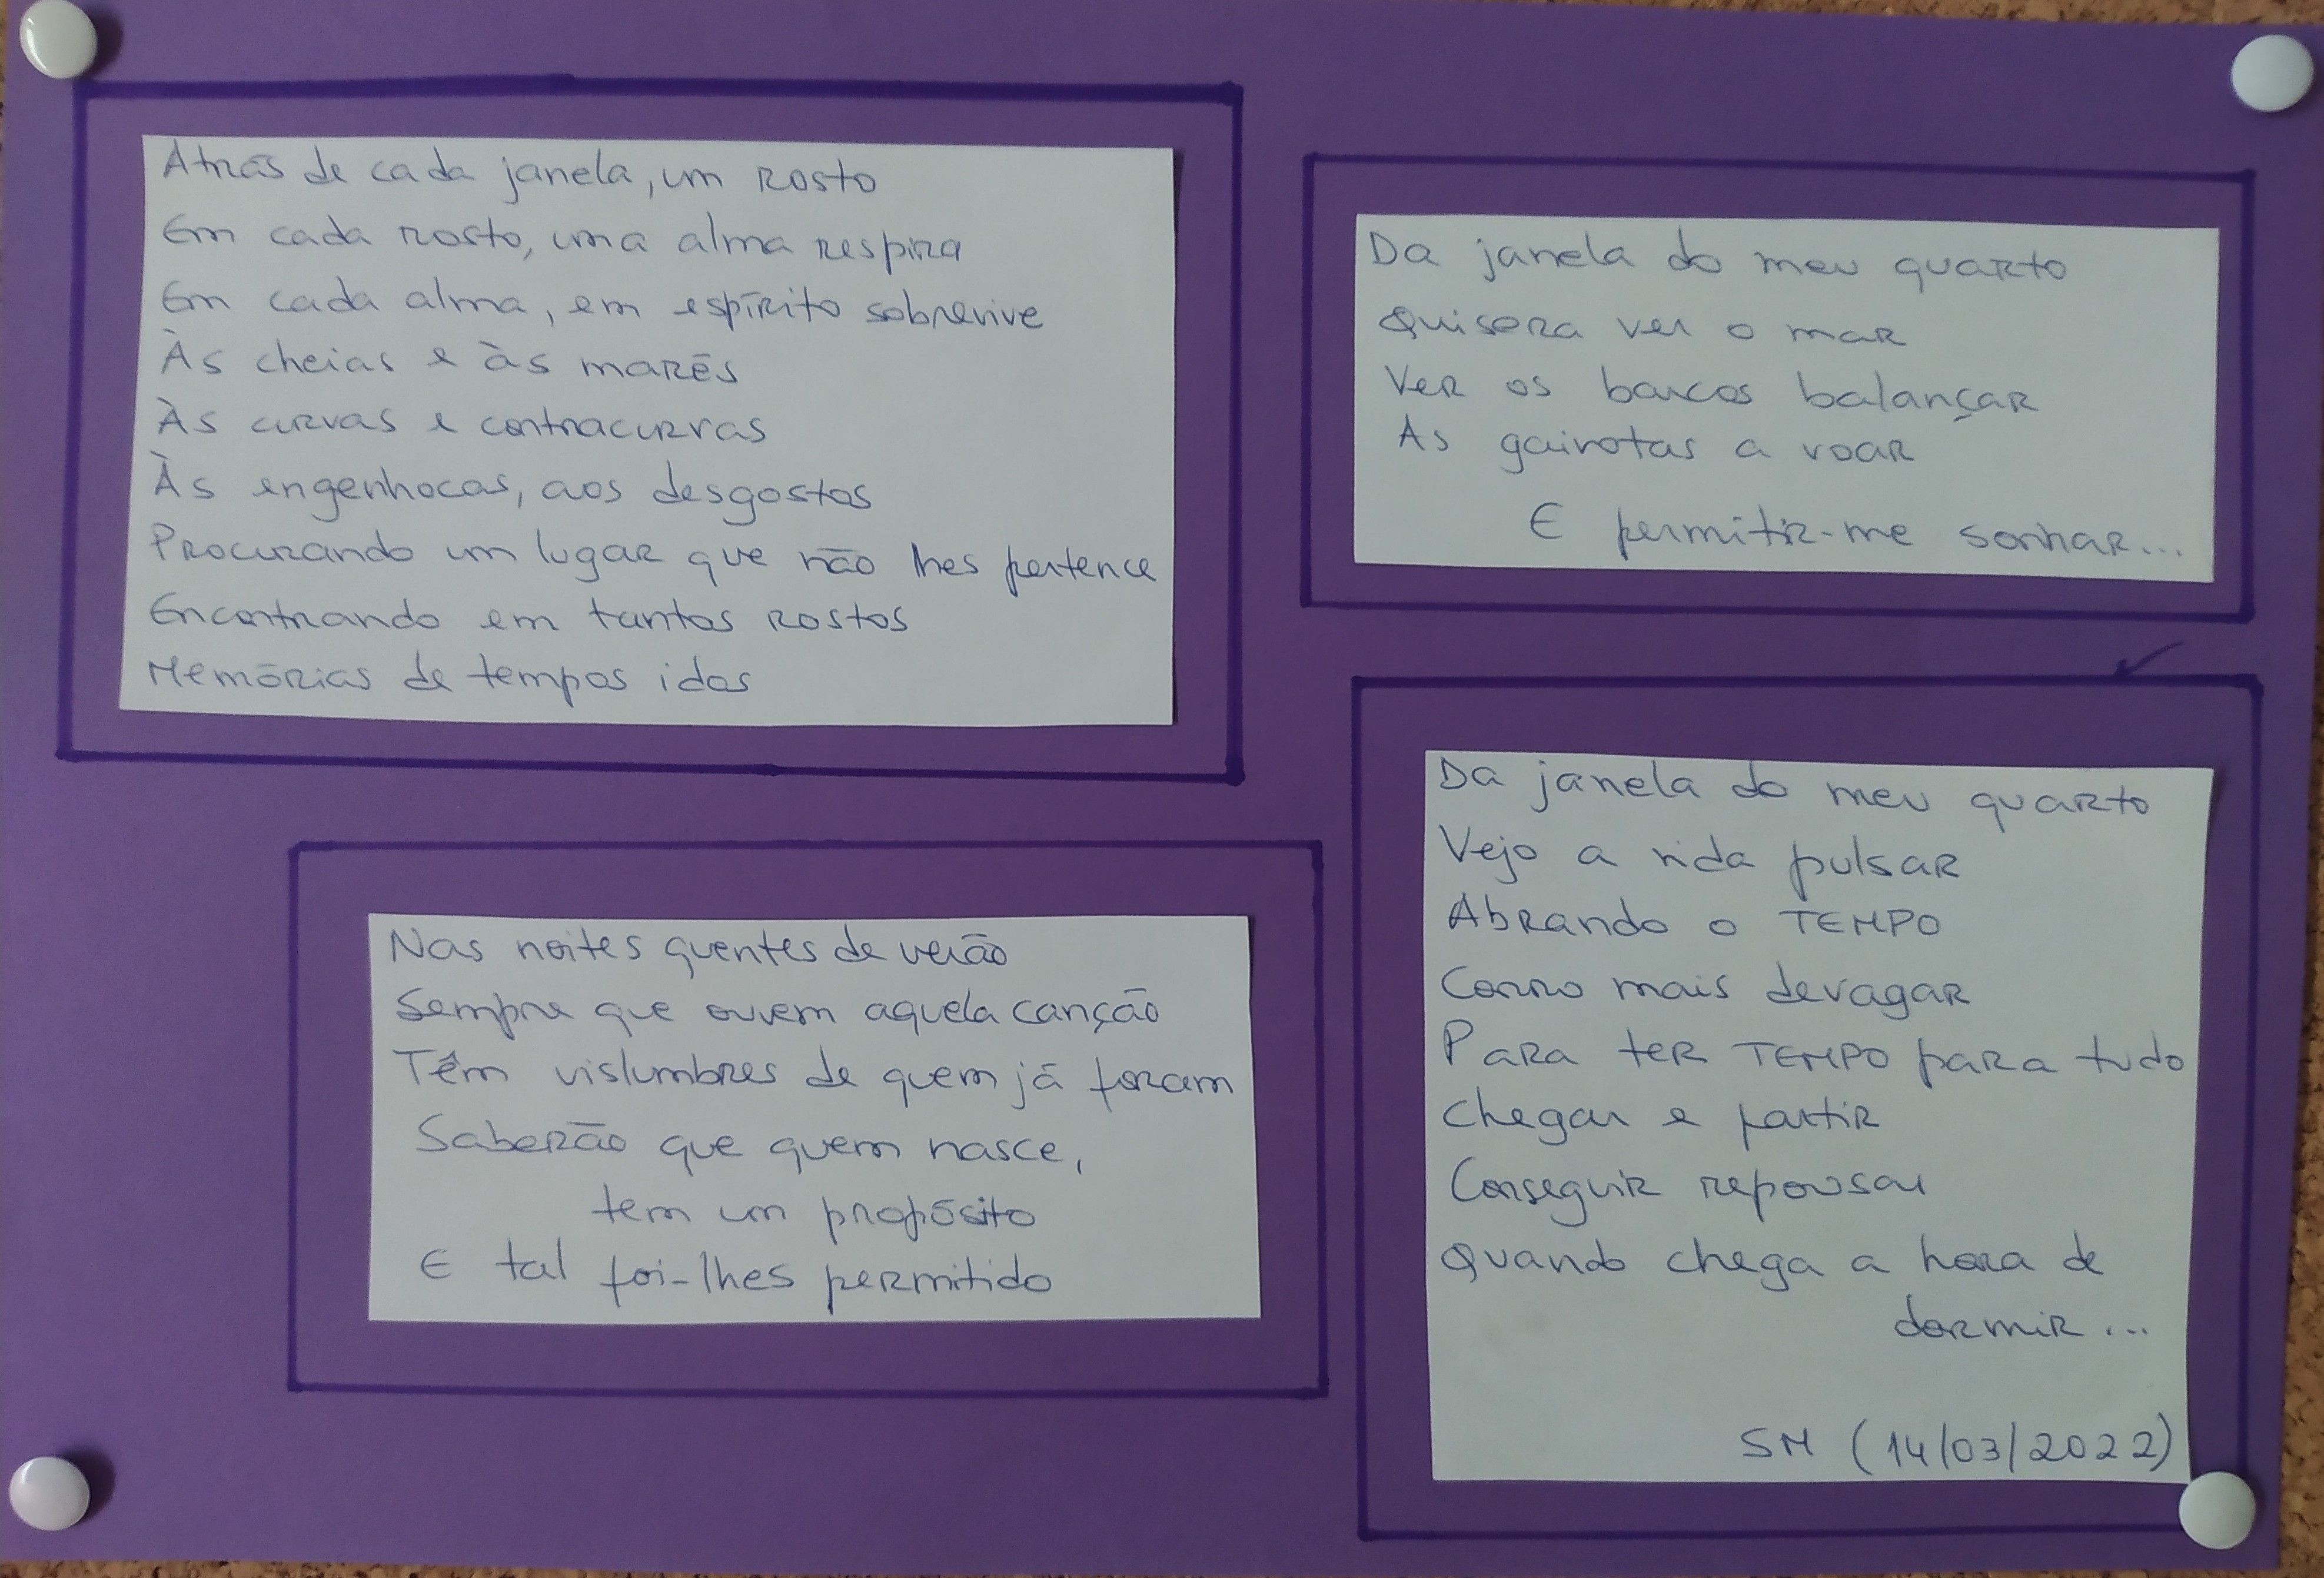 Atrás de cada janela, um rosto
Em cada rosto, uma alma respira
Em cada alma, em espírito sobrevive
Às cheias e às marés
Às curvas e contracurvas
Às engenhocas, aos desgostos
Procurando um lugar que não lhes pertence
Encontrando em tantos rostos
Memórias de tempos idos
Nas noites quentes de verão
Sempre que ouvem aquela canção
Têm vislumbres de quem já foram
Saberão que quem nasce,
tem um propósito
E tal foi-lhes permitido
Da janela do meu quarto
Quisera ver o mar
Ver os barcos balançar
As gaivotas a voar
E permitir-me sonhar...
Da janela do meu quarto
Vejo a vida pulsar
Abrando o TEMPO
Corro mais devagar
Para ter TEMPO para tudo
Chegar e partir
Conseguir repousar
Quando chega a hora de
dormir...
SM (14/03/2022)